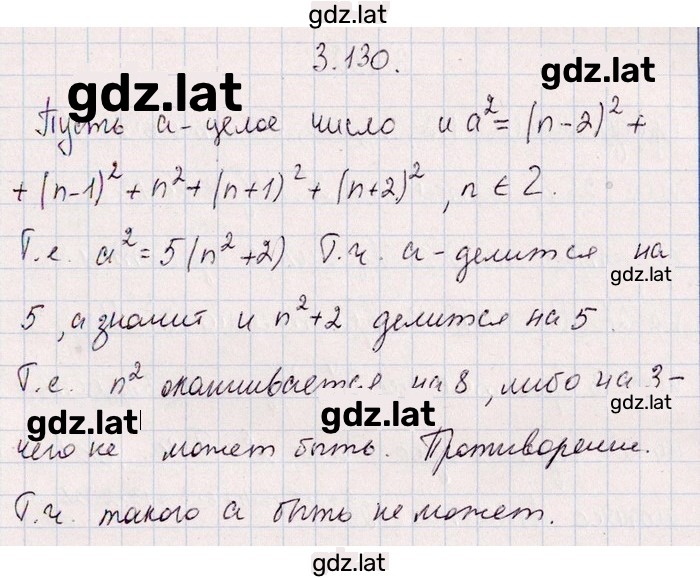 gdz.lat
3.130.
gdz.lat
gdz.lat
Пусть a - целое число и a² = (n-2)² +
+ (n-1)² + n² + (n+1)² + (n+2)², n ∈ Z.
Т.е. a² = 5(n²+2) Т.ч. a - делится на
gdz.lat
5, а значит и n²+2 делится на 5.
Т.е. n² оканчивается на 8, либо на 3 -
gdz.lat
gdz.lat
gdz.lat
чего не может быть. Противоречие.
Т.ч. такого a быть не может.
gdz.lat